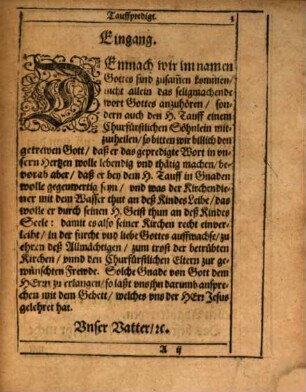 Tauffpredigt.
Eingang.
DEmnach wir im namen
Gottes sind zusam̃en kommen/
nicht allein das seligmachende
wort Gottes anzuhören/ son-
dern auch den H. Tauff einem
Churfürstlichen Söhnlein mit-
zutheilen/ so bitten wir billich den
getrewen Gott/ daß er das gepredigte Wort in vn-
sern Hertzen wolle lebendig vnd thätig machen/ be-
vorab aber/ daß er bey dem H. Tauff in Gnaden
wolle gegenwertig seyn/ vnd was der Kirchendie-
ner mit dem Wasser thut an deß Kindes Leibe/ das
wolle er durch seinen H. Geist thun an deß Kindes
Seele: damit es also seiner Kirchen recht einver-
leibe/ in der furcht vnd liebe Gottes auffwachse/ zu
ehren deß Allmächtigen/ zum trost der betrübten
Kirchen/ vnnd den Churfürstlichen Eltern zur ge-
wünschten Frewde. Solche Gnade von Gott dem
HErrn zu erlangen/ so last vns jhn darumb anspre-
chen mit dem Gebett/ welches vns der HErr Jesus
gelehret hat.
Vnser Vatter/ ꝛc.
A ij